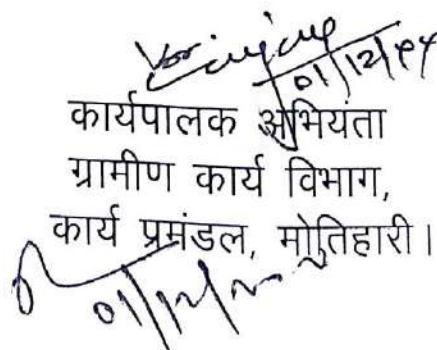 01/12/
कार्यपालक अभियंता
ग्रामीण कार्य विभाग,
कार्य प्रमंडल, मोतिहारी।
01/12/